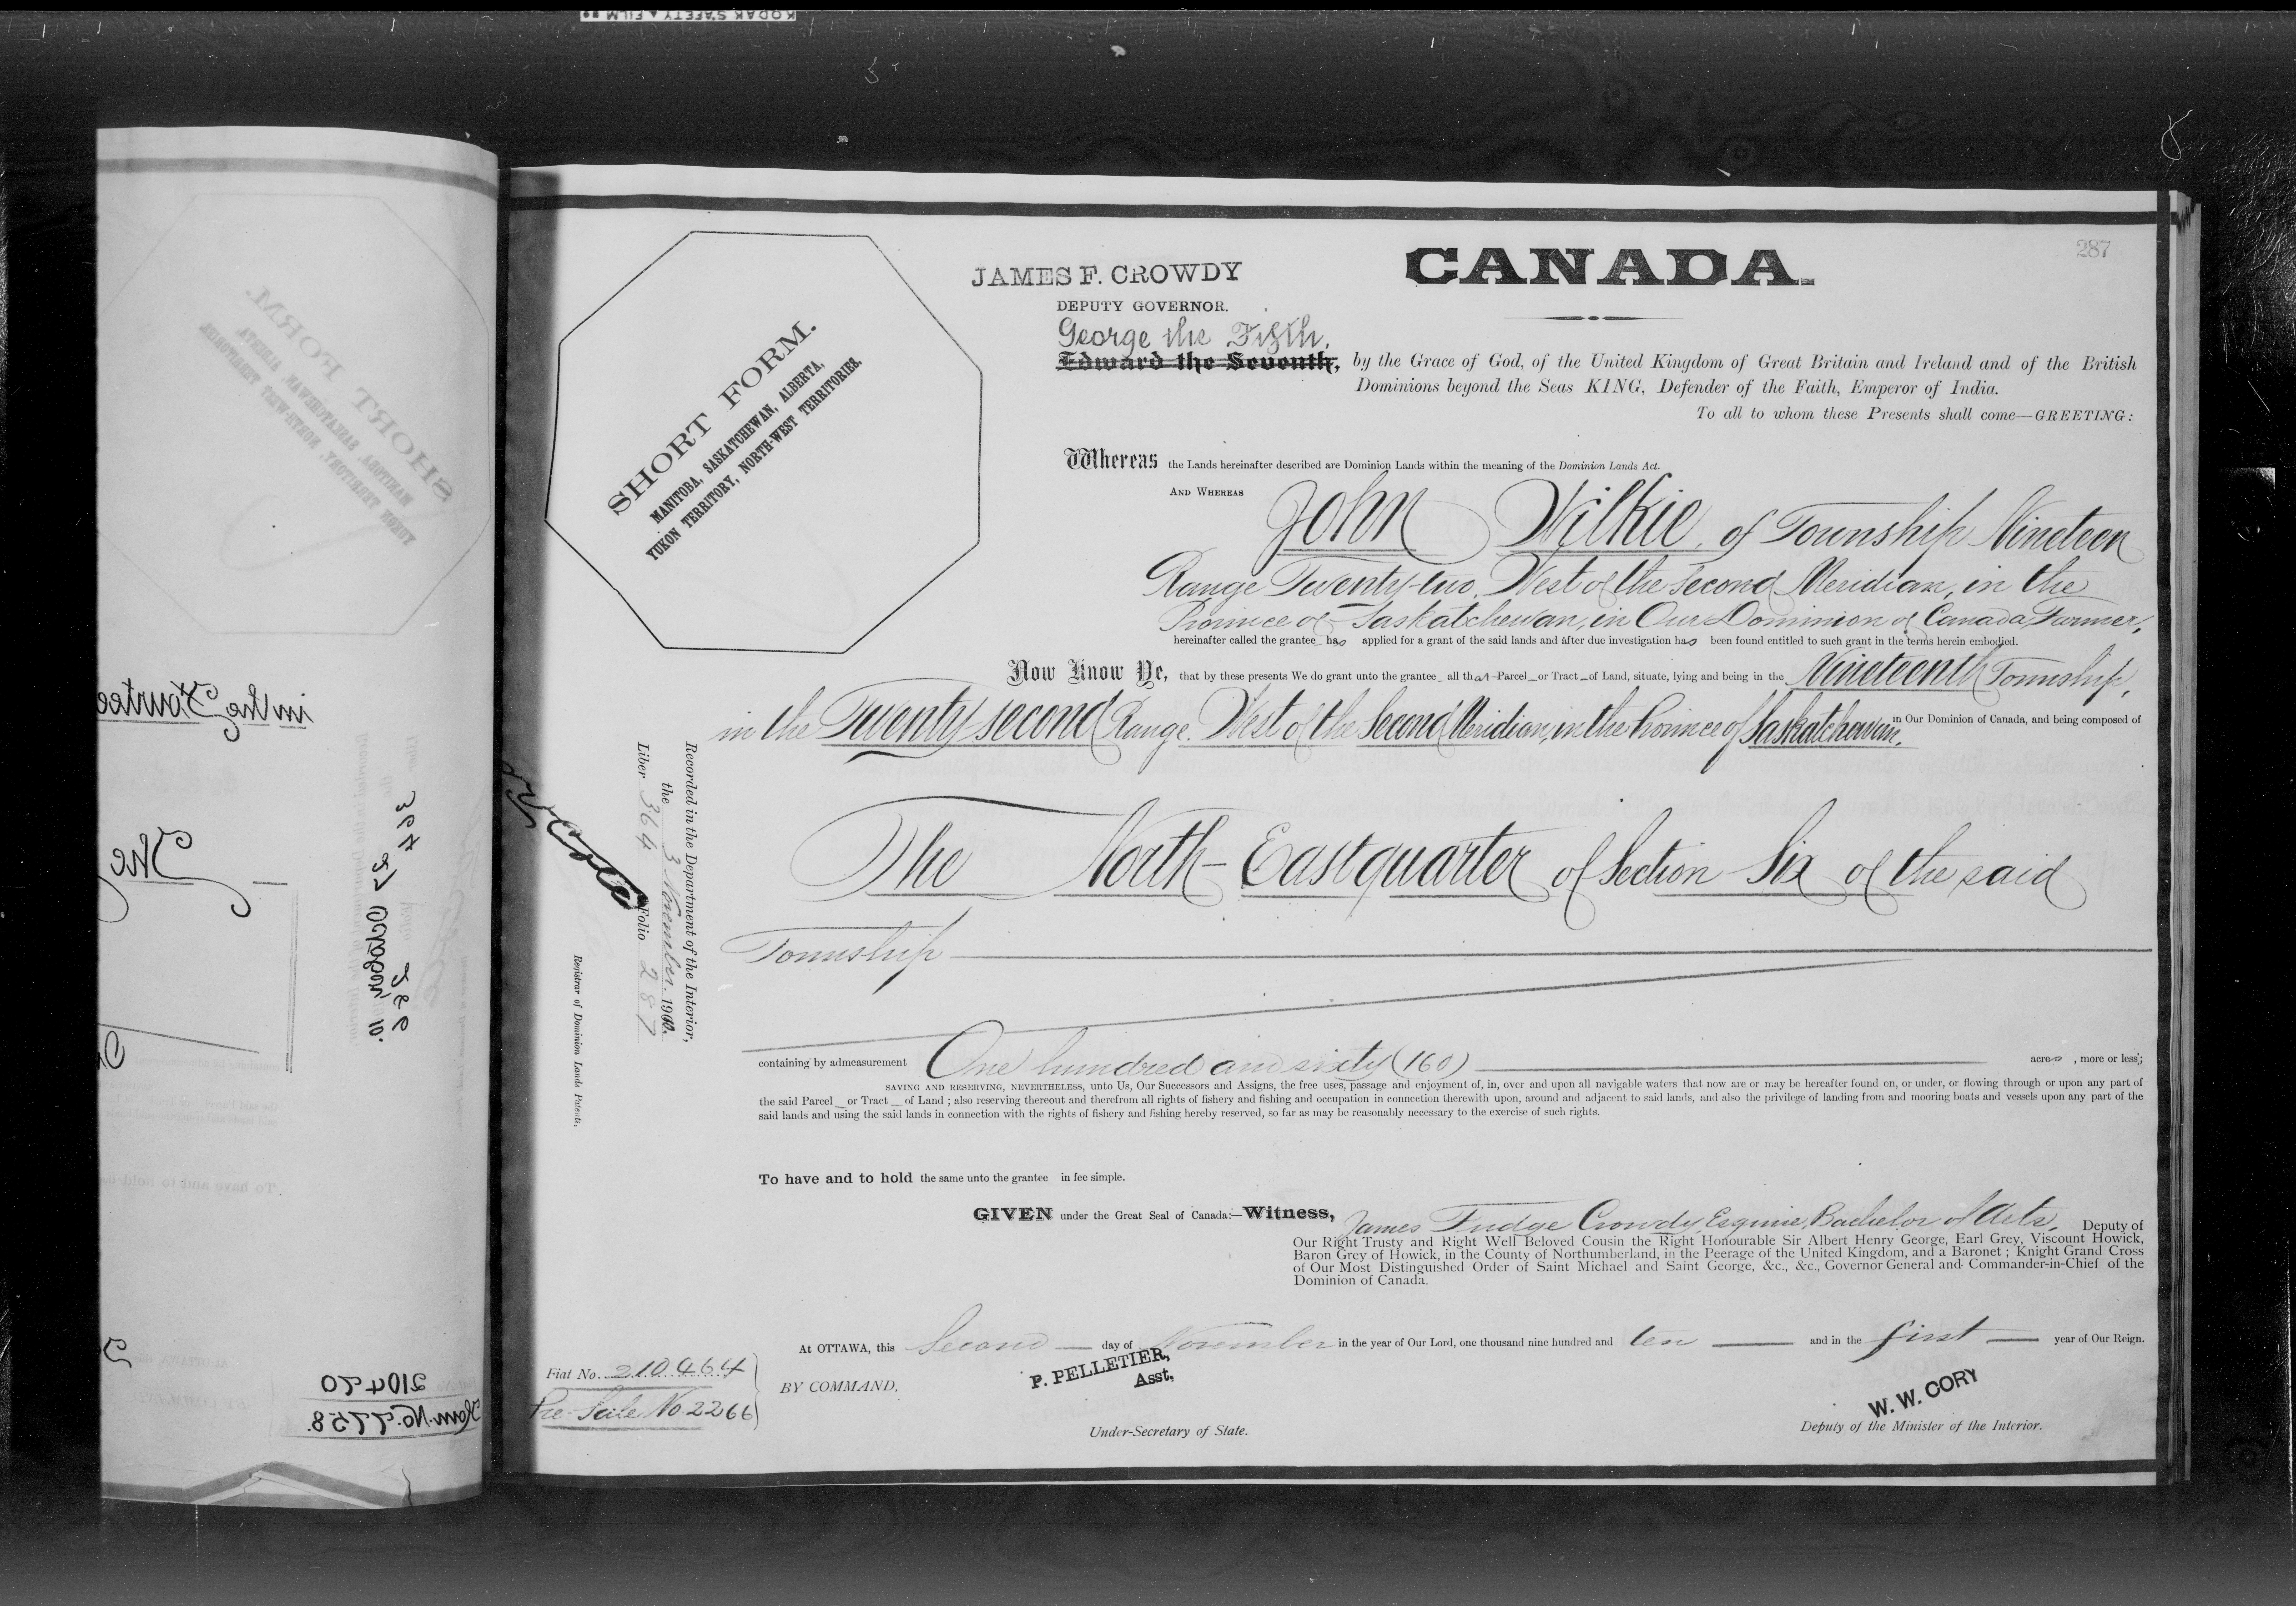 KODAK SAFETY FILM
287
CANADA.
JAMES F. CROWDY
DEPUTY GOVERNOR.
George the Fifth,
Edward the Seventh, by the Grace of God, of the United Kingdom of Great Britain and Ireland and of the British
Dominions beyond the Seas KING, Defender of the Faith, Emperor of India.
To all to whom these Presents shall come—GREETING:
SHORT FORM.
MANITOBA, SASKATCHEWAN, ALBERTA,
YUKON TERRITORY, NORTH-WEST TERRITORIES.
Whereas the Lands hereinafter described are Dominion Lands within the meaning of the Dominion Lands Act.
AND WHEREAS John Wilkie, of Township Nineteen
Range Twenty-two, West of the Second Meridian, in the
Province of Saskatchewan, in Our Dominion of Canada, Farmer,
hereinafter called the grantee has applied for a grant of the said lands and after due investigation has been found entitled to such grant in the terms herein embodied.
Now Know Ye, that by these presents We do grant unto the grantee all that Parcel or Tract of Land, situate, lying and being in the Nineteenth Township,
in the Twenty second Range West of the Second Meridian, in the Province of Saskatchewan, in Our Dominion of Canada, and being composed of
The North-East quarter of Section Six of the said
Township
containing by admeasurement One hundred and sixty (160) acres, more or less;
SAVING AND RESERVING, NEVERTHELESS, unto Us, Our Successors and Assigns, the free uses, passage and enjoyment of, in, over and upon all navigable waters that now are or may be hereafter found on, or under, or flowing through or upon any part of
the said Parcel or Tract of Land ; also reserving thereout and therefrom all rights of fishery and fishing and occupation in connection therewith upon, around and adjacent to said lands, and also the privilege of landing from and mooring boats and vessels upon any part of the
said lands and using the said lands in connection with the rights of fishery and fishing hereby reserved, so far as may be reasonably necessary to the exercise of such rights.
To have and to hold the same unto the grantee in fee simple.
GIVEN under the Great Seal of Canada:—Witness, James Fudge Crowdy, Esquire, Bachelor of Arts, Deputy of
Our Right Trusty and Right Well Beloved Cousin the Right Honourable Sir Albert Henry George, Earl Grey, Viscount Howick,
Baron Grey of Howick, in the County of Northumberland, in the Peerage of the United Kingdom, and a Baronet ; Knight Grand Cross
of Our Most Distinguished Order of Saint Michael and Saint George, &c., &c., Governor General and Commander-in-Chief of the
Dominion of Canada.
At OTTAWA, this Second day of November in the year of Our Lord, one thousand nine hundred and ten and in the first year of Our Reign.
BY COMMAND,
P. PELLETIER,
Asst,
Under-Secretary of State.
W. W. CORY
Deputy of the Minister of the Interior.
Fiat No. 210464
Pre-Sale No. 2266
Recorded in the Department of the Interior,
the 3 November 1910.
Liber 364 Folio 287
Registrar of Dominion Lands Patents.
SHORT FORM.
MANITOBA, SASKATCHEWAN, ALBERTA,
YUKON TERRITORY, NORTH-WEST TERRITORIES
in the
The
364
October 10.
286
To have and to hold
210420
Hom. No.